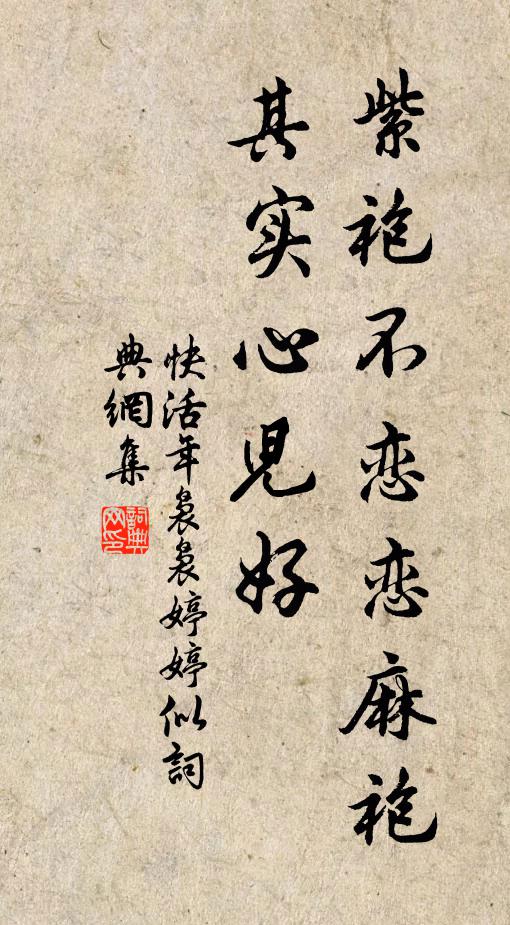 紫袍不恋恋麻袍
其实心儿好
快活年袅袅婷婷似詞
典網集
詞典网印